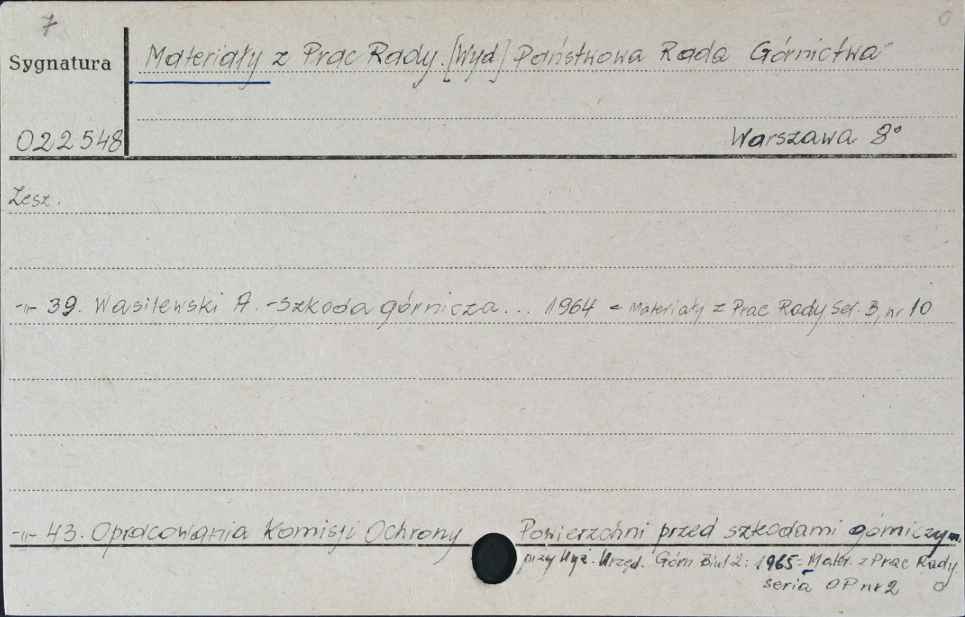 7
Sygnatura
Materiały z Prac Rady. [Wyd] Państwowa Rada Górnictwa
022548
Warszawa 8°
Zesz.
-"- 39. Wasilewski A. - Szkoda górnicza... 1964 = Materiały z Prac Rady Ser. 3, nr 10
-"- 43. Opracowania Komisji Ochrony Powierzchni przed szkodami górniczym
przy Wyż. Urzęd. Górn Biul 2: 1965 = Mater. z Prac Rady
seria OP nr 2